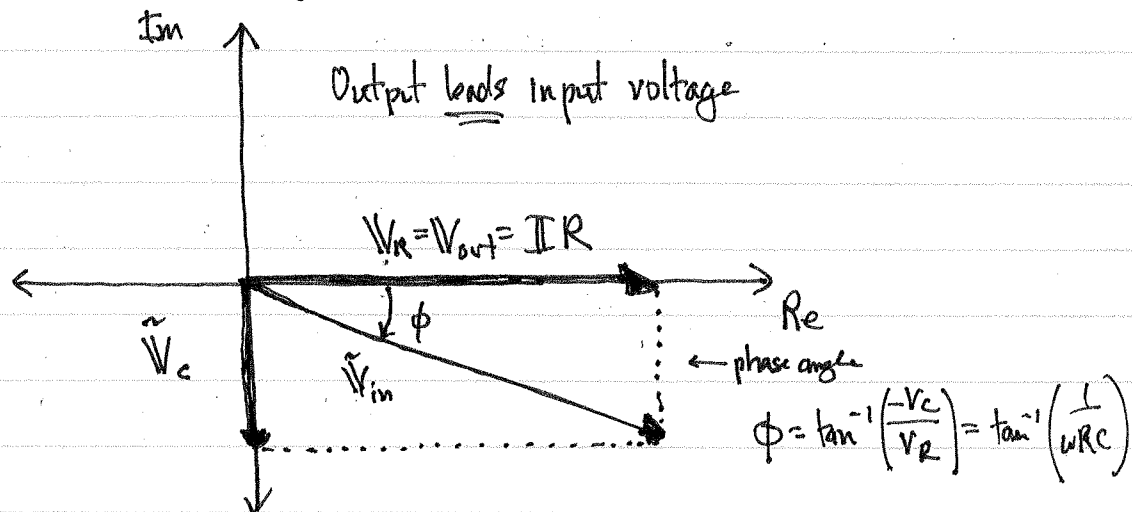 Im
Output leads input voltage
𝕍R = 𝕍out = 𝕀R
Re
ϕ
Ṽc
Ṽin
← phase angle
ϕ = tan⁻¹(-Vc/VR) = tan⁻¹(1/ωRC)